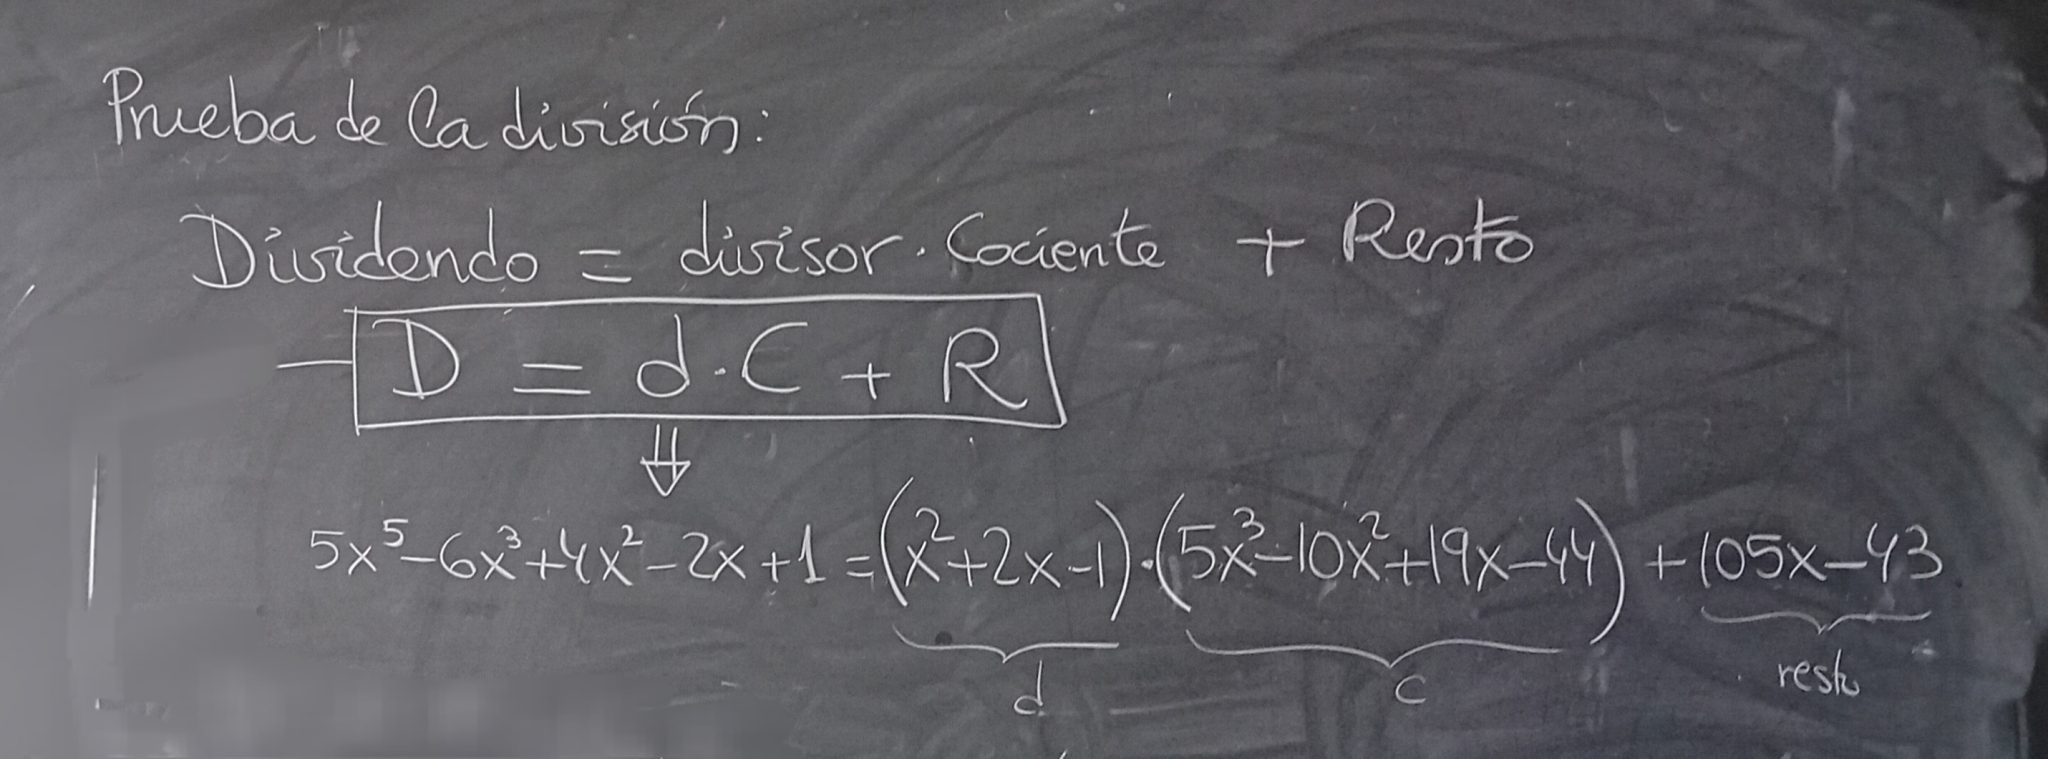 Prueba de la división:
Dividendo = divisor · Cociente + Resto
D = d · C + R
⇓
5x⁵-6x³+4x²-2x+1=(x²+2x-1)·(5x³-10x²+19x-44)+105x-43
d c resto